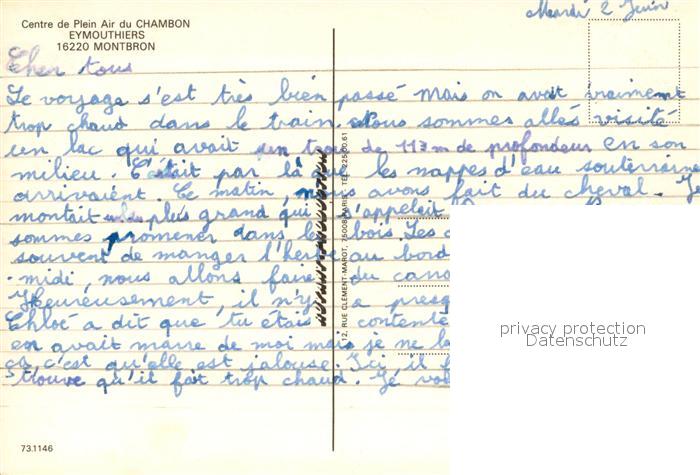 Centre de Plein Air du CHAMBON
EYMOUTHIERS
16220 MONTBRON
Mardi 2 Juin
Cher tous
Le voyage s'est très bien passé mais on avait vraiment
trop chaud dans le train. Nous sommes allés visité
un lac qui avait un trou de 117 m de profondeur en son
milieu. C'était par là que les nappes d'eau souterraine
arrivaient. Ce matin, nous avons fait du cheval. Je
montait le plus grand, qui s'appelait
sommes promener dans les bois. Les
souvent de manger l'herbe au bord
-midi, nous allons faire du cano
Heureusement, il n'y a presq
Chloé a dit que tu étais contente
en avait marre de moi mais je ne la
ça c'est qu'elle est jalouse. Ici il f
trouve qu'il fait trop chaud. Je vou
12, RUE CLÉMENT-MAROT, 75008 PARIS. TÉL. 225.00.61
privacy protection
Datenschutz
73.1146